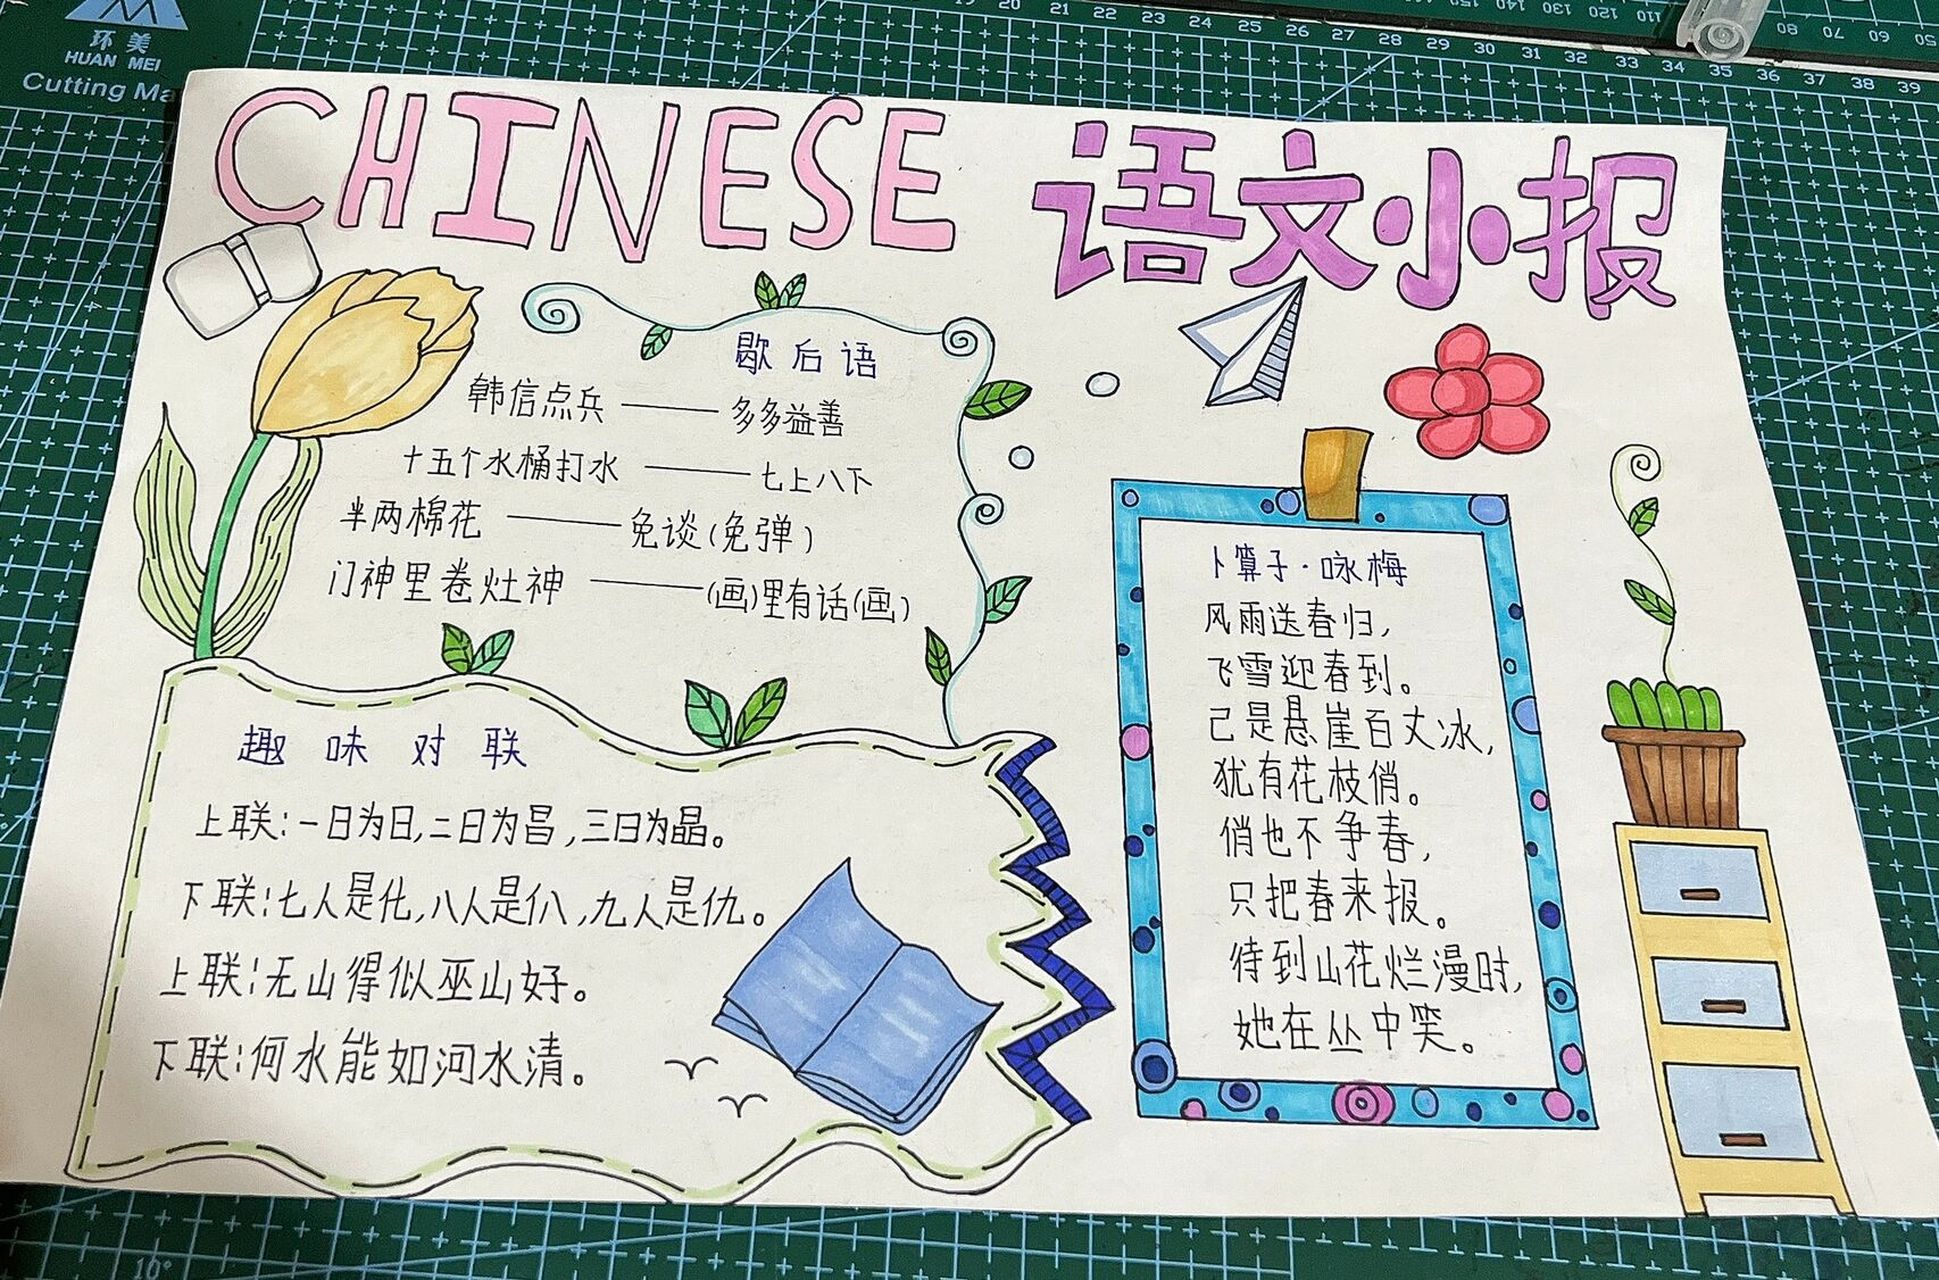 环美
HUAN MEI
Cutting Ma
19 20 21 22 23 24 25 26 27 28 29 30 31 32 33 34 35 36 37 38 39
CHINESE 语文小报
歇后语
韩信点兵——多多益善
十五个水桶打水——七上八下
半两棉花——免谈(免弹)
门神里卷灶神——(画)里有话(画)
趣味对联
上联:一日为日,二日为昌,三日为晶。
下联:七人是仩,八人是仈,九人是仇。
上联:无山得似巫山好。
下联:何水能如河水清。
卜算子·咏梅
风雨送春归,
飞雪迎春到。
己是悬崖百丈冰,
犹有花枝俏。
俏也不争春,
只把春来报。
待到山花烂漫时,
她在丛中笑。
10°